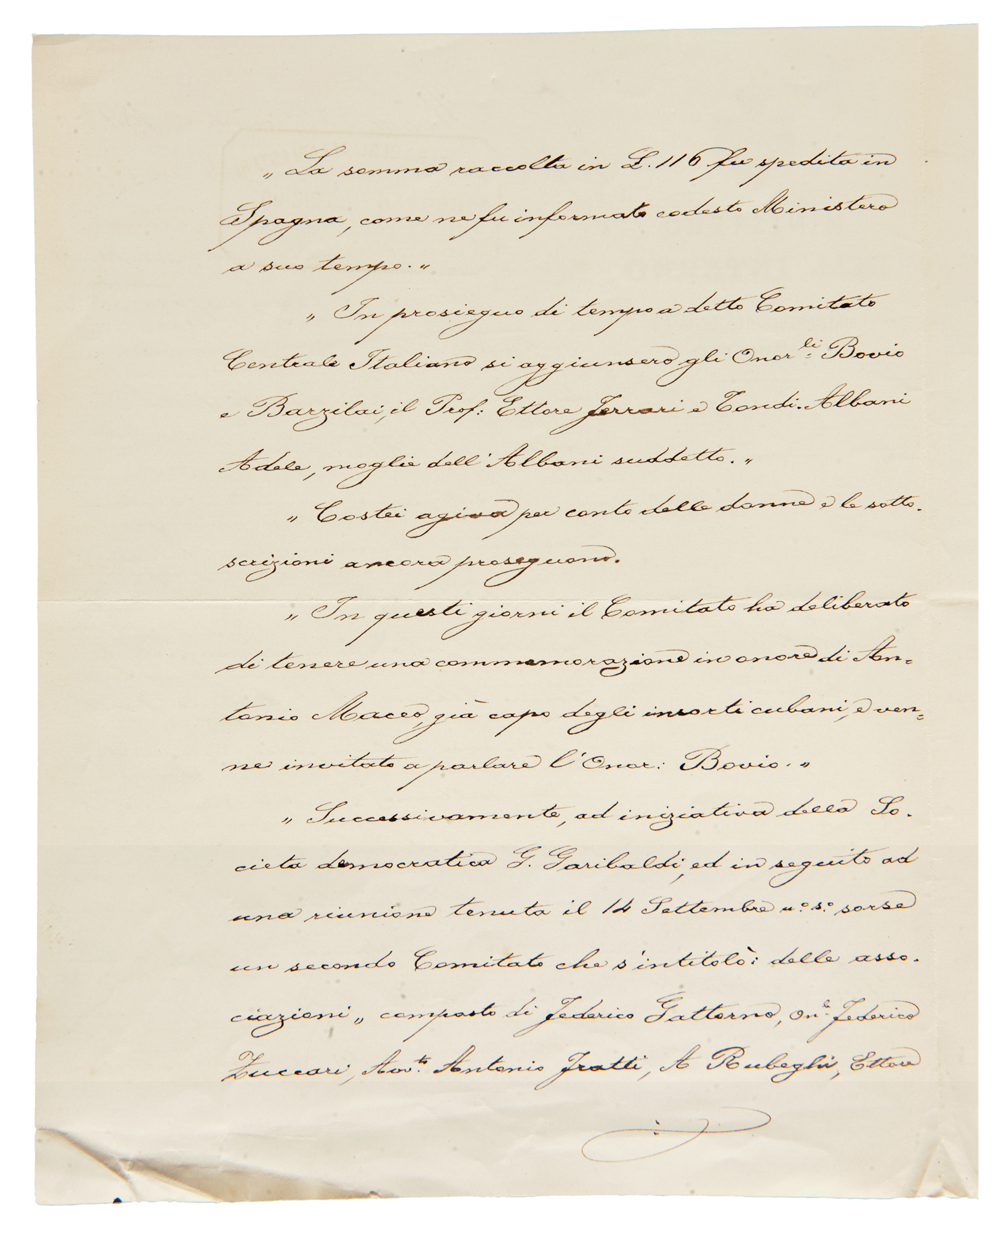 „ La somma raccolta in L. 116 fu spedita in
Spagna, come ne fu informato codesto Ministero
a suo tempo. „
„ In prosieguo di tempo a detto Comitato
Centrale Italiano si aggiunsero gli Onor.li Bovio
e Barzilai, il Prof: Ettore Ferrari e Tondi-Albani
Adele, moglie dell'Albani suddetto. „
„ Costei agiva per conto delle donne e le sotto-
scrizioni ancora proseguono.
„ In questi giorni il Comitato ha deliberato
di tenere una commemorazione in onore di An=
tonio Maceo, già capo degli insorti cubani, e ven=
ne invitato a parlare l'Onor: Bovio. „
„ Successivamente, ad iniziativa della So-
cietà democratica G. Garibaldi, ed in seguito ad
una riunione tenuta il 14 Settembre u.° s.° sorse
un secondo Comitato che s'intitolò: delle asso-
ciazioni „ composto di Federico Gattorno, On.le Federico
Zuccari, Avv.to Antonio Fratti, A Rubeghi, Ettore